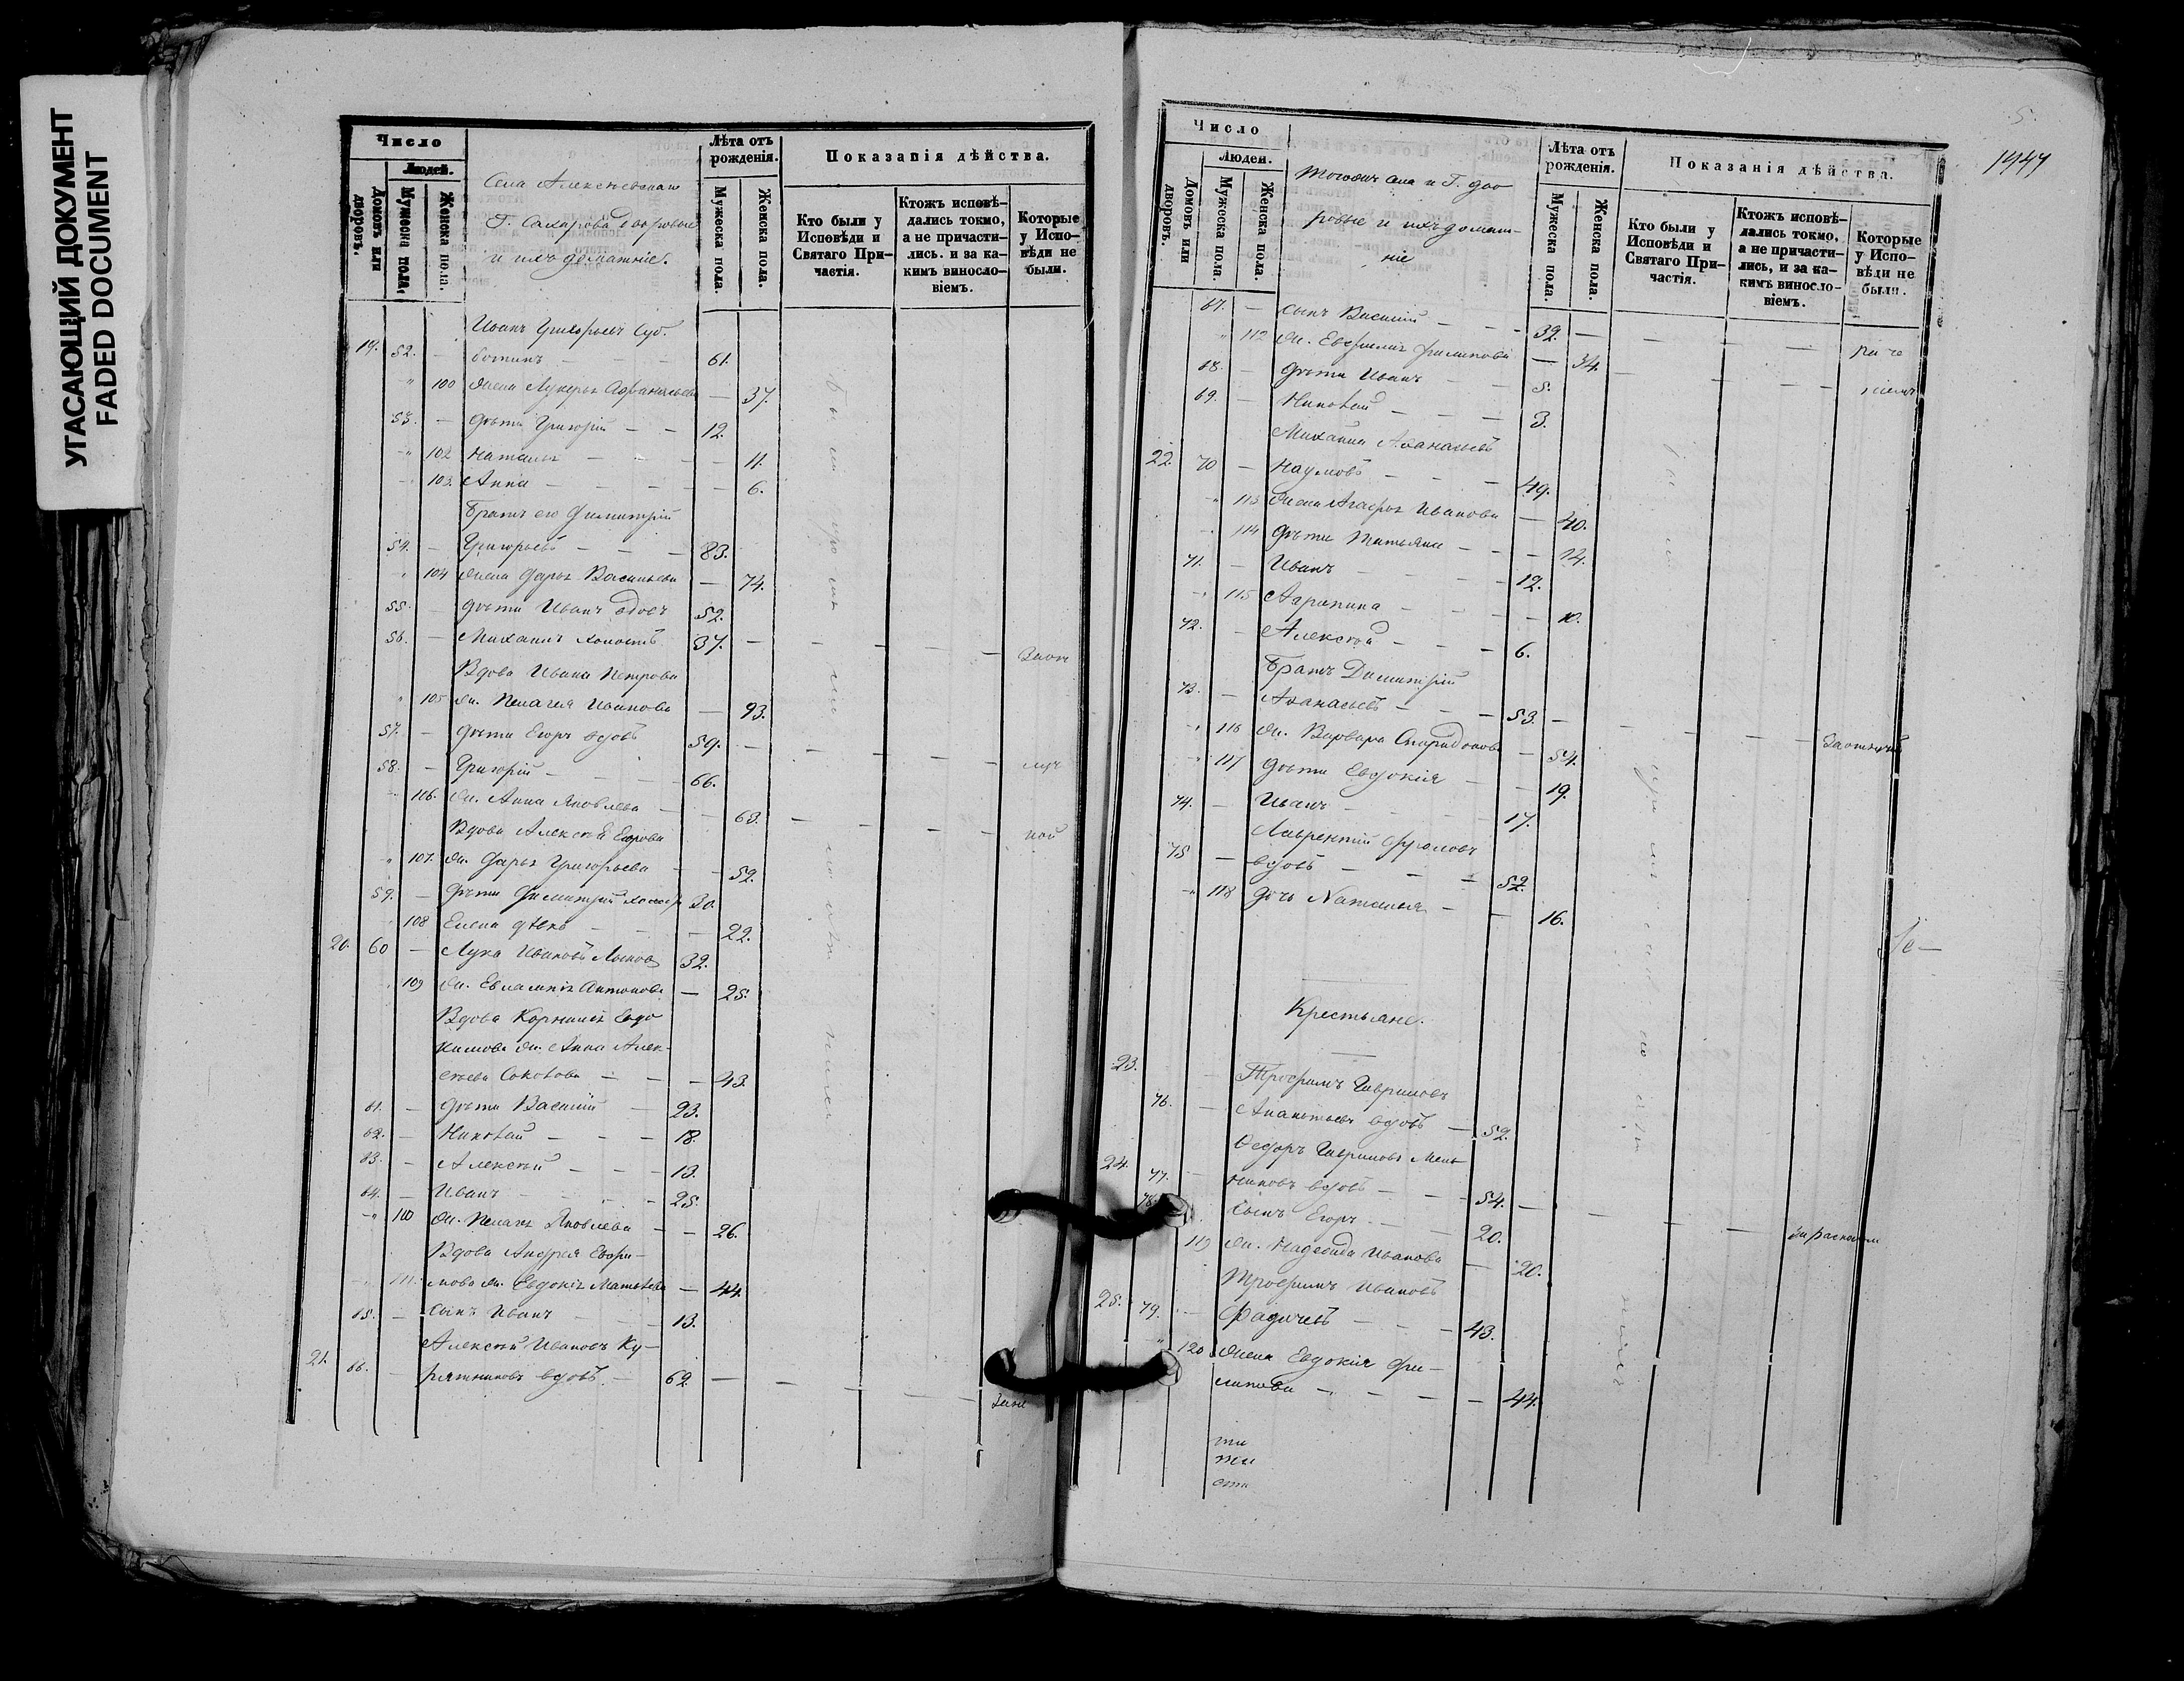 УГАСАЮЩИЙ ДОКУМЕНТ
FADED DOCUMENT
Число
Людей.
Домовъ или дворовъ.
Мужеска пола.
Женска пола.
Села Алексеевскаго
Г. Сахарова дворовые
и ихъ домашніе.
Лѣта отъ рожденія.
Мужеска пола.
Женска пола.
Показанія дѣйства.
Кто были у Исповѣди и Святаго Причастія.
Ктожъ исповѣдались токмо, а не причастились. и за какимъ винословіемъ.
Которые у Исповѣди не были.
Иванъ Григорьевъ Суб
19. 52. — ботинъ — — — 61.
" 100 Жена Лукерья Афанасьева — 37.
53. — Дѣти Григорій — — 12.
" 102 Наталья — — — — 11.
103. Анна — — — — 6.
Братъ его Димитрій
54. — Григорьевъ — — — 83.
" 104 Жена Дарья Васильева — 74.
55. — Дѣти Иванъ вдовъ 52.
56. — Михаилъ холостъ 37. — — — —
Вдова Ивана Петрова
" 105 Ж. Пелагея Иванова — 93.
57. — Дѣти Егоръ вдовъ 59. — — — —
58. — Григорій — — — 66.
106. Ж. Анна Яковлева — — 63. — — — —
Вдова Алексѣя Егорова
" 107. Ж. Дарья Григорьева — — 52.
59. — Дѣти Димитрій 30.
108 Елена — — 22.
20. 60 — Лука Ивановъ 32.
109 Ж. Евлампія Антонова — 25.
Вдова Корнилія Евдо
кимова Ж. Анна Алек-
сѣева Соколова — — — 43.
61. — Дѣти Василій — 23.
62. — Николай — — — 18.
63. — Алексѣй — — — 13.
64. — Иванъ — — — 25.
" 110 Ж. Пелагея Яковлева — — 26.
Вдова Андрея Ефи-
111. мова Ж. Евдокія Матвѣева — 44.
65. — Сынъ Иванъ — — — 13.
Алексѣй Ивановъ Ку-
21. 66. — рятниковъ вдовъ — 62. — — — —
5.
1947
Число
Людей.
Домовъ или дворовъ.
Мужеска пола.
Женска пола.
Тогожъ села и Г. дво
ровые и ихъ домаш-
ніе
Лѣта отъ рожденія.
Мужеска пола.
Женска пола.
Показанія дѣйства.
Кто были у Исповѣди и Святаго Причастія.
Ктожъ исповѣдались токмо, а не причастились, и за какимъ винословіемъ.
Которые у Исповѣди не были.
67. — Сынъ Василій — — — 32. — — — —
" 112 Ж. Евфимія Филипова — 34. — — — —
68. — Дѣти Иванъ — — 5.
69. — Николай — — — 3.
Михаилъ Аѳанасьевъ
22. 70 — Наумовъ — — — 49.
" 113 Жена Агафья Иванова — 40.
" 114 Дѣти Татьяна — — — 14.
71. — Иванъ — — — — 12.
" 115 Агрипина — — — — 10.
72. — Алексѣй — — — 6.
Братъ Димитрій
73. — Аѳанасьевъ — — — 53. — — — —
" 116 Ж. Варвара Спиридонова — 54.
" 117 Дѣти Евдокія — — 19.
74. — Иванъ — — — — 17.
Лаврентій Фроловъ
75 — вдовъ — — — 52.
" 118 Дочь Наталья — — 16.
Крестьяне.
23. Трофимъ Гавриловъ
76. — Ананьевъ вдовъ — 52.
Ѳедоръ Гавриловъ Мель
24. 77. — никовъ вдовъ — — — 54. — — — —
78. Сынъ Егоръ — — — 20.
119 Ж. Надежда Иванова — 20.
Трофимъ Ивановъ
25. 79. — Фадичевъ — — — 43.
" 120 Жена Евдокія Фи-
липова — — — — 44.